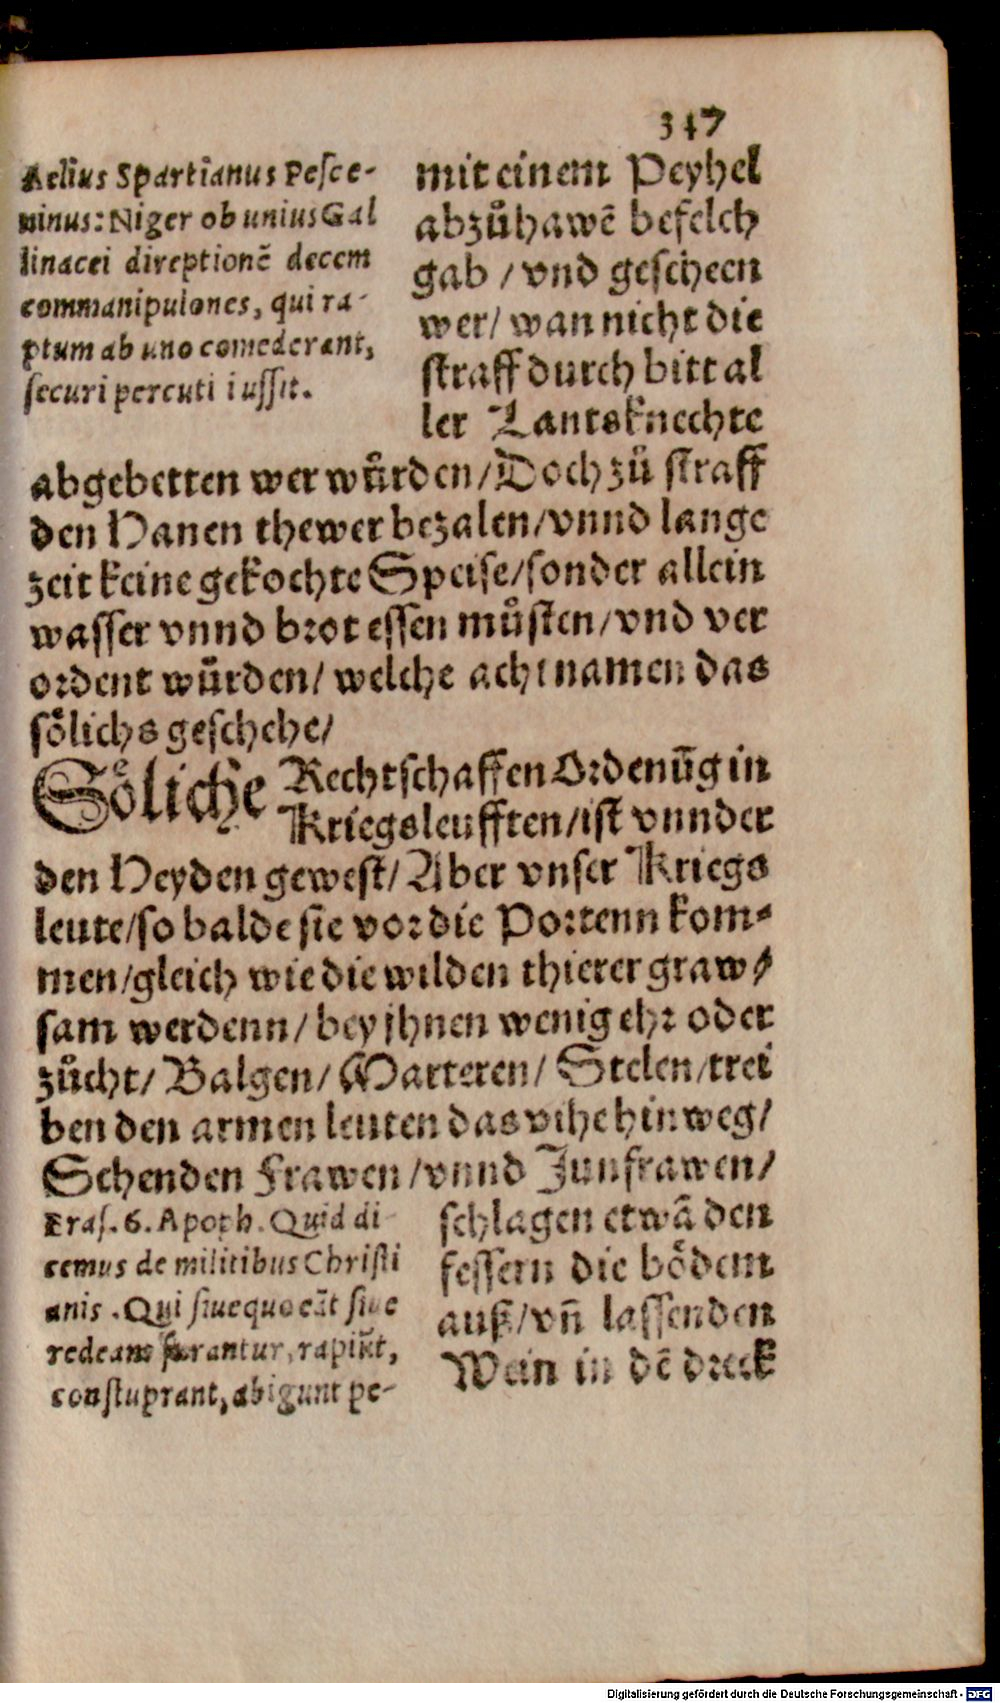 347
Aelius Spartianus Pesce-
ninus: Niger ob unius Gal
linacei direptionẽ decem
commanipulones, qui ra-
ptum ab uno comederant,
ſecuri percuti iuſſit.
mit einem Peyhel
abzůhawẽ befelch
gab / vnd geſcheen
wer / wan nicht die
ſtraff durch bitt al
ler Lantsknechte
abgebetten wer wůrden / Doch zů ſtraff
den Hanen thewer bezalen / vnnd lange
zeit keine gekochte Speiſe / ſonder allein
waſſer vnnd brot eſſen můſten / vnd ver
ordent wůrden / welche acht namen das
ſoͤlichs geſchehe /
Soͤliche Rechtſchaffen Ordenũg in
Kriegsleufften / iſt vnnder
den Heyden geweſt / Aber vnſer Kriegs
leute / ſo balde ſie vor die Portenn kom-
men / gleich wie die wilden thierer graw-
ſam werdenn / bey jhnen wenig ehr oder
zůcht / Balgen / Marteren / Stelen / trei
ben den armen leuten das vihe hinweg /
Schenden Frawen / vnnd Junfrawen /
Eraſ. 6. Apoph. Quid di-
cemus de militibus Chriſti
anis. Qui ſiue quo eãt ſiue
redeant furantur, rapiũt,
conſtuprant, abigunt pe-
ſchlagen etwã den
feſſern die boͤdem
auß / vñ laſſen den
Wein in dẽ dreck
Digitalisierung gefördert durch die Deutsche Forschungsgemeinschaft - DFG